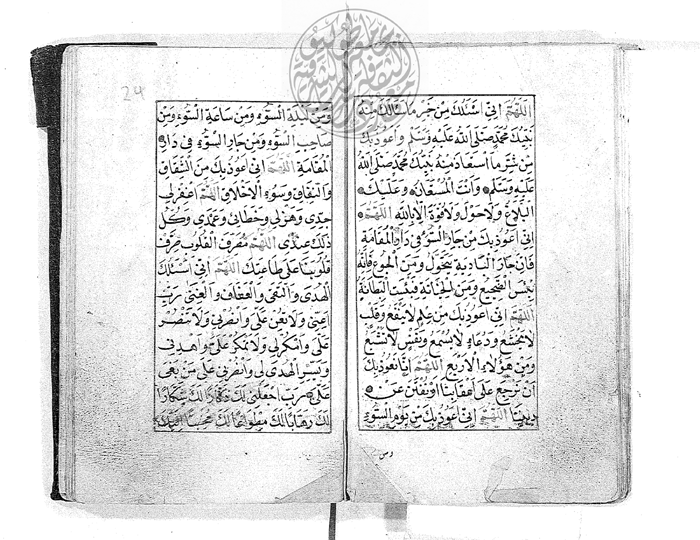 اللهم اني اسئلك من خير ما سالك منه
نبيك محمد صلى الله عليه وسلم واعوذ بك
من شر ما استعاذ منه نبيك محمد صلى الله
عليه وسلم وانت المستعان وعليك
البلاغ ولا حول ولا قوة الا بالله اللهم
اني اعوذ بك من جار السوء في دار المقامة
فان جار البادية يتحول ومن الجوع فانه
بئس الضجيع ومن الخيانة فبئست البطانة
اللهم اني اعوذ بك من علم لا ينفع وقلب
لا يخشع ودعاء لا يسمع ونفس لا تشبع
ومن هؤلاء الاربع اللهم انا نعوذ بك
ان نرجع على اعقابنا او نفتن عن
ديننا اللهم اني اعوذ بك من يوم السوء
ومن
24
ومن ليلة السوء ومن ساعة السوء ومن
صاحب السوء ومن جار السوء في دار
المقامة اللهم اني اعوذ بك من الشقاق
والنفاق وسوء الاخلاق اللهم اغفر لي
جدي وهزلي وخطائي وعمدي وكل
ذلك عندي اللهم مصرف القلوب صرف
قلوبنا على طاعتك اللهم اني اسئلك
الهدى والتقى والعفاف والغنى رب
اعني ولا تعن علي وانصرني ولا تنصر
علي وامكر لي ولا تمكر علي واهدني
ويسر الهدى لي وانصرني على من بغى
علي رب اجعلني لك ذكارا لك شكارا
لك رهابا لك مطواعا لك مخبتا اليك